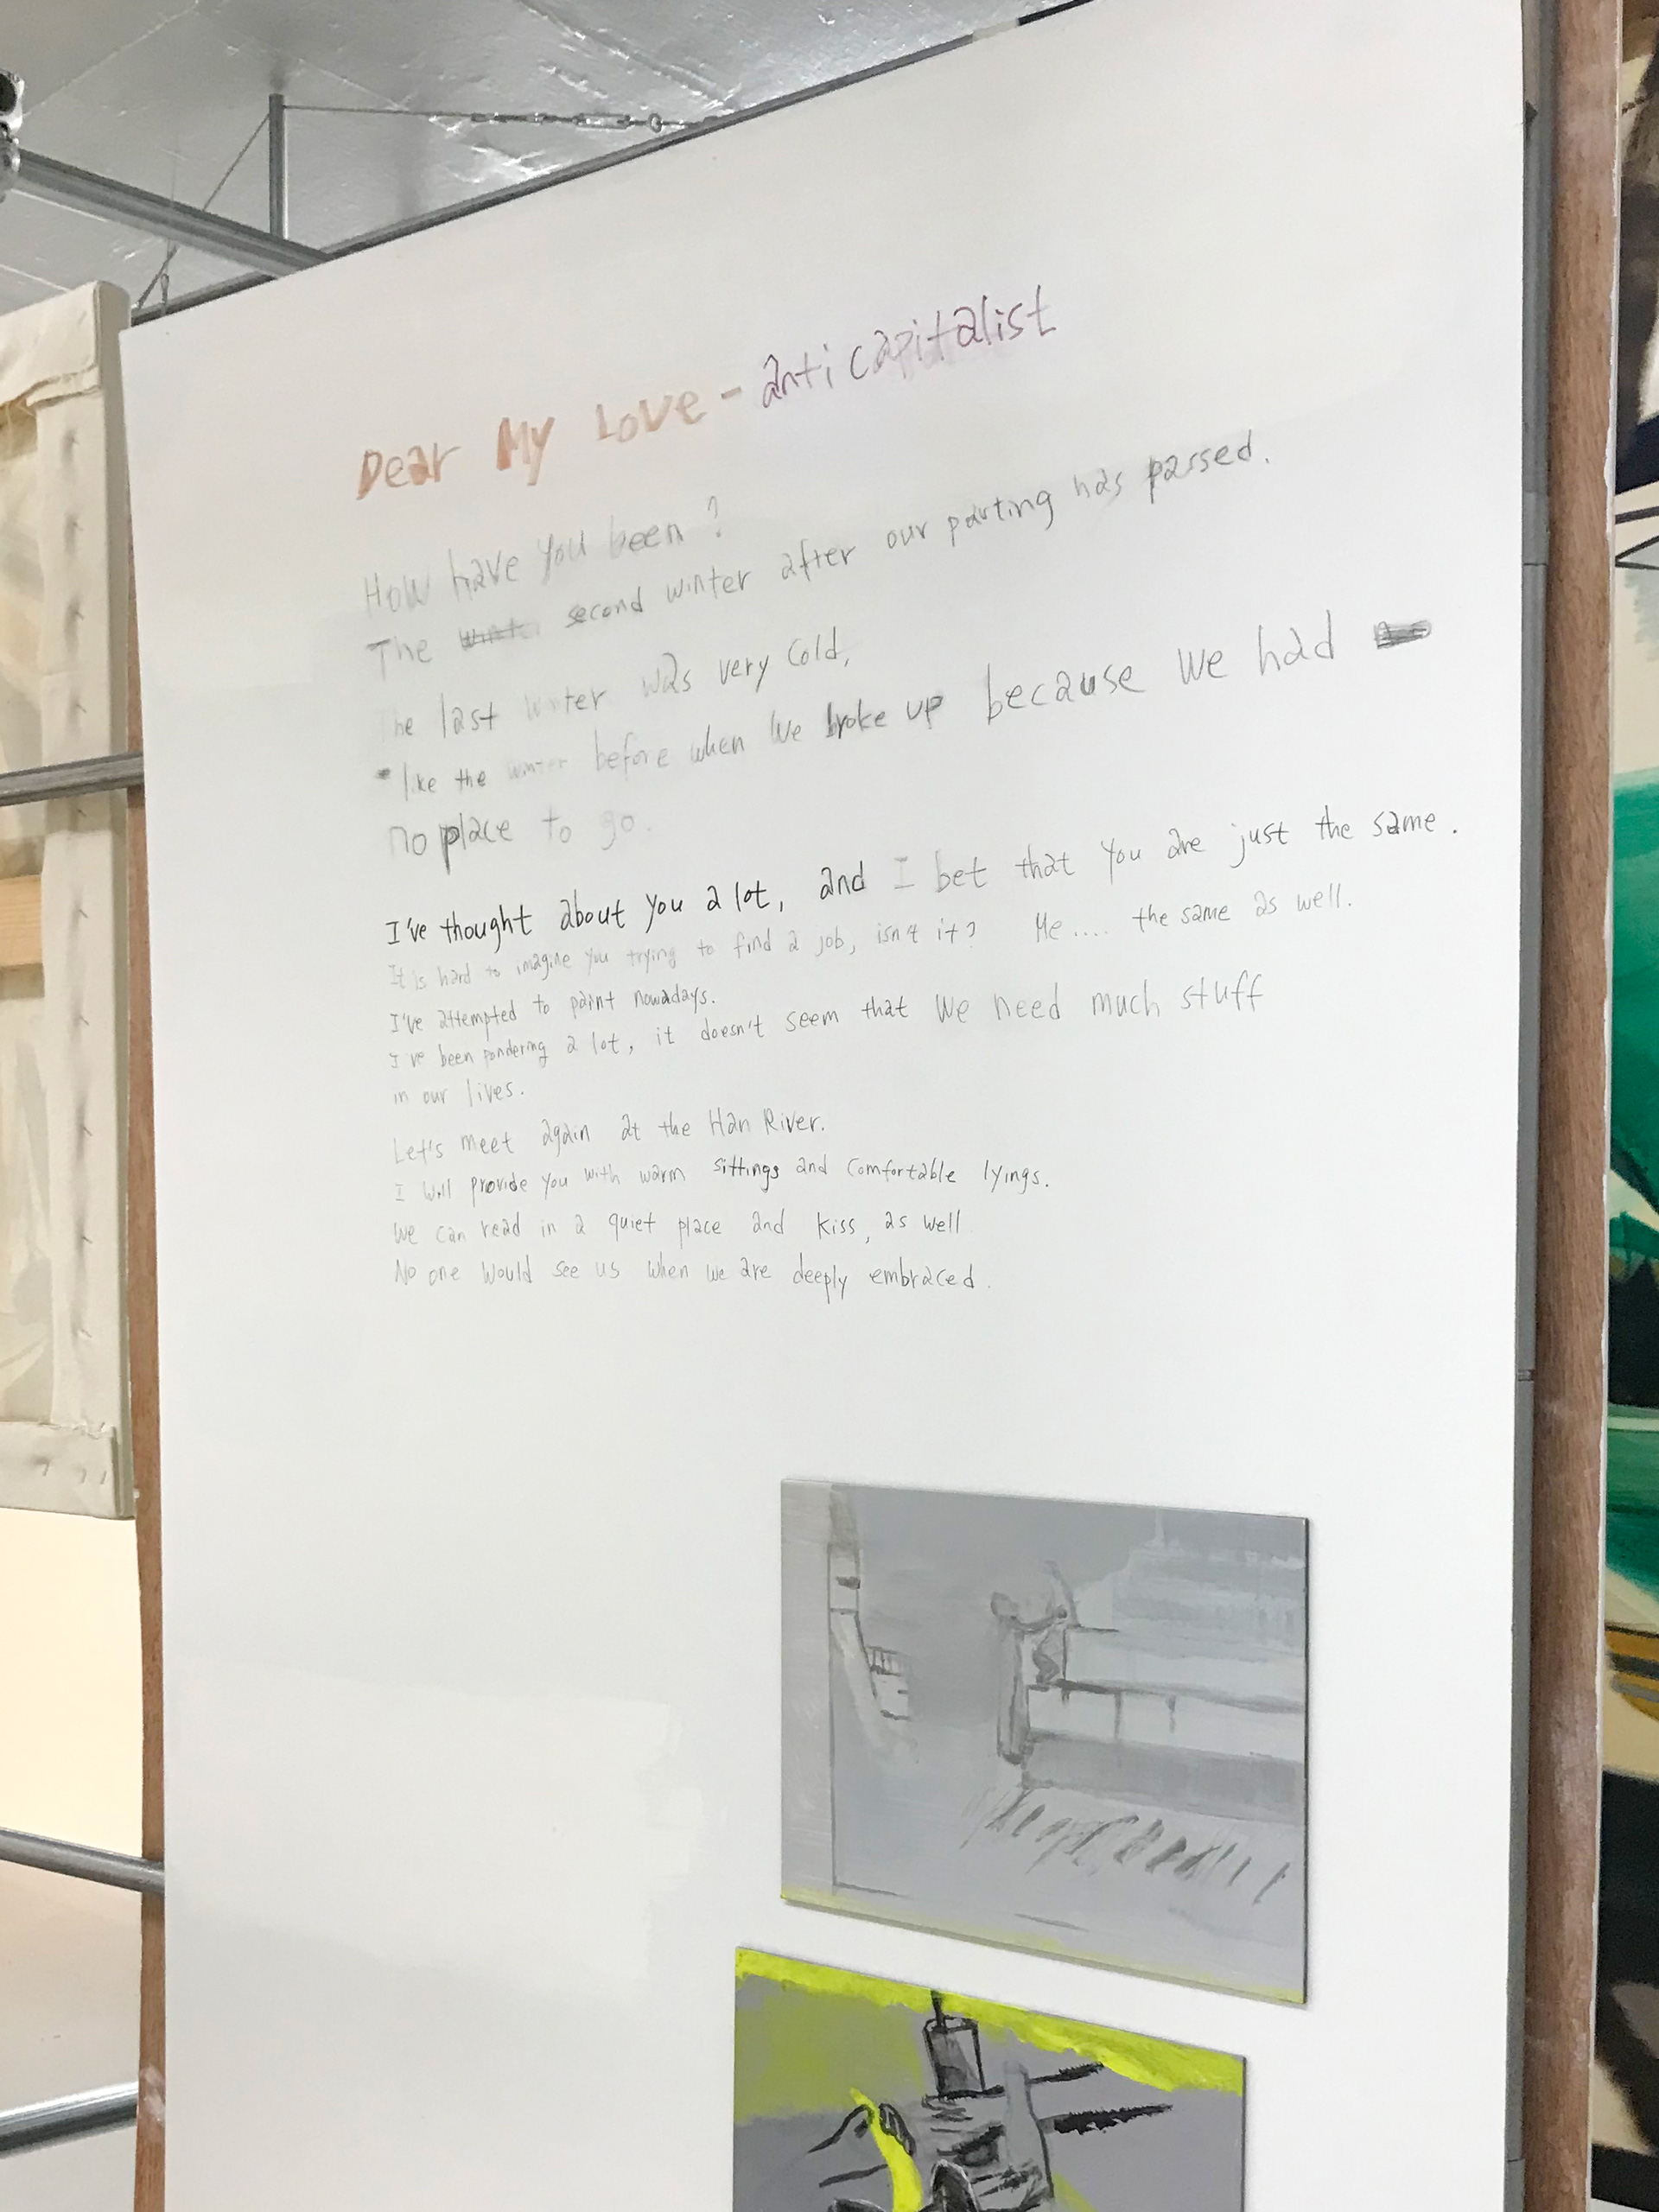 Dear My Love - anti capitalist
How have you been?
The winter second winter after our parting has passed.
The last winter was very cold,
like the winter before when we broke up because we had
no place to go.
I've thought about you a lot, and I bet that you are just the same.
It is hard to imagine you trying to find a job, isn't it? Me.... the same as well.
I've attempted to paint nowadays.
I've been pondering a lot, it doesn't seem that we need much stuff
in our lives.
Let's meet again at the Han River.
I will provide you with warm sittings and comfortable lyings.
We can read in a quiet place and kiss, as well
No one would see us when we are deeply embraced.